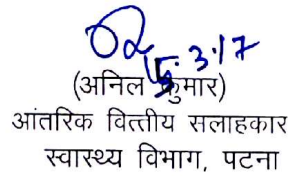 15.3.17
(अनिल कुमार)
आंतरिक वित्तीय सलाहकार
स्वास्थ्य विभाग, पटना